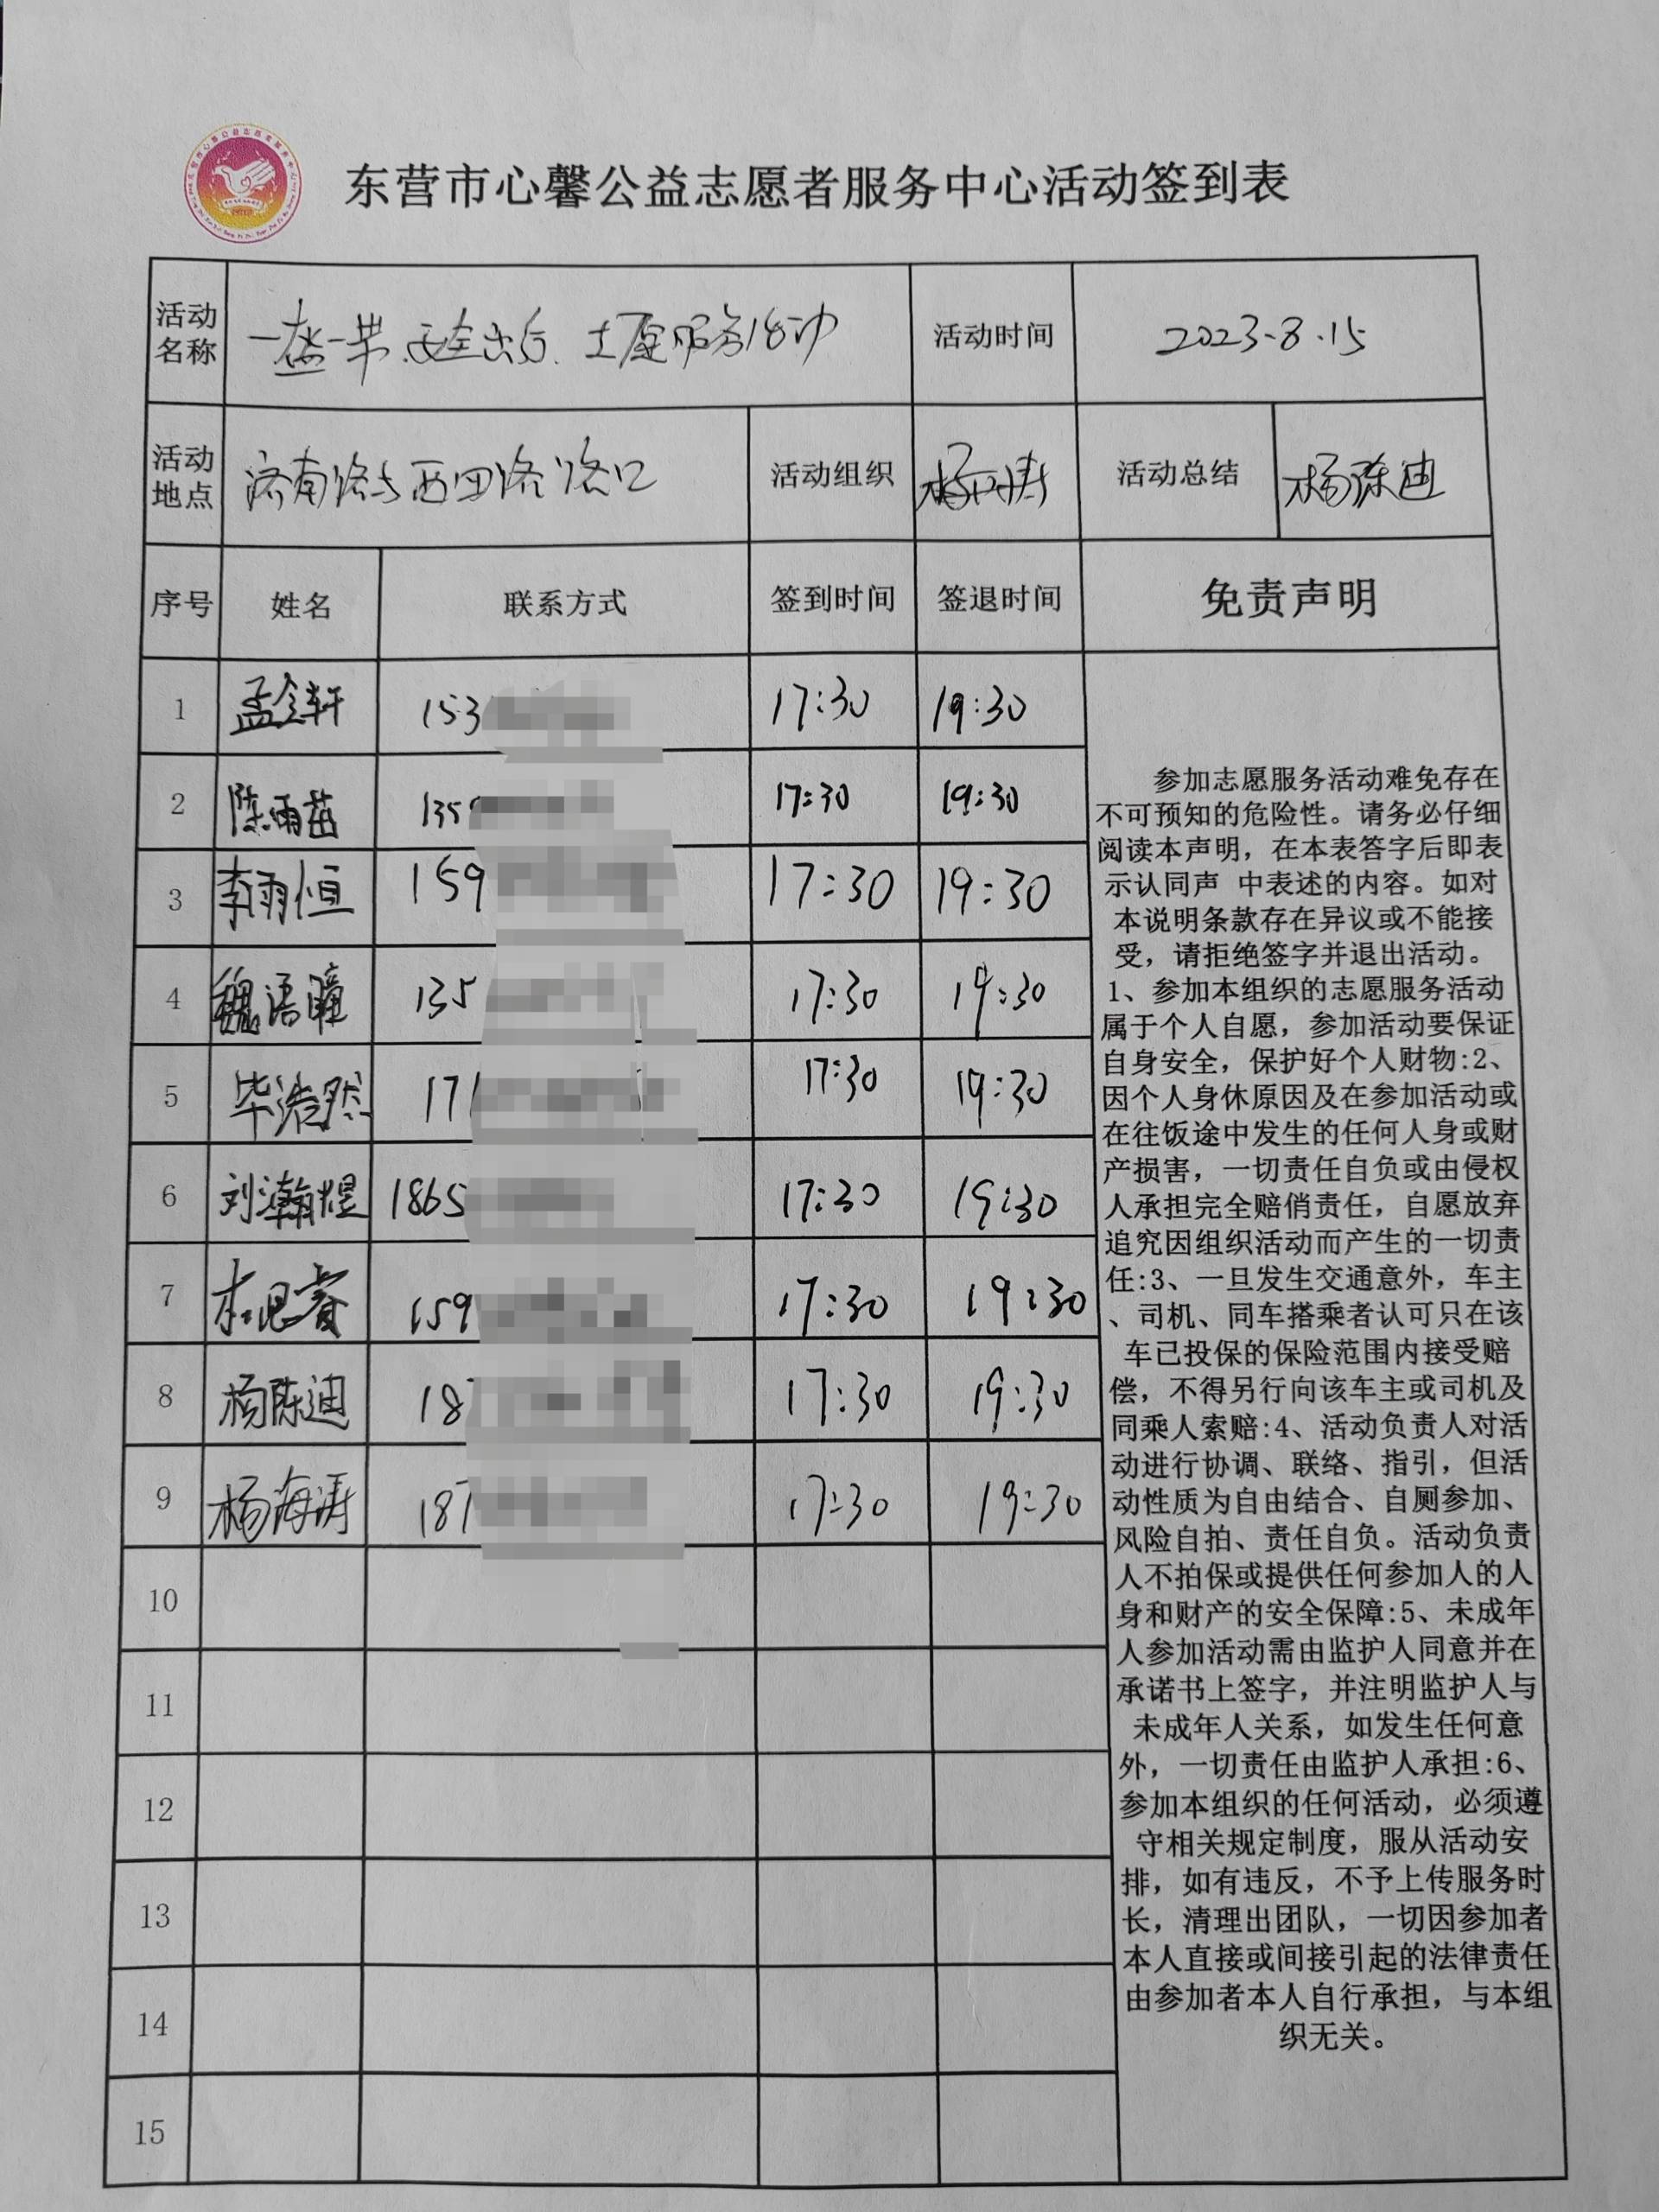 东营市心馨公益志愿者服务中心活动签到表
活动名称 一盔一带 安全出行 志愿服务活动 活动时间 2023.8.15
活动地点 济南路与西四路路口 活动组织 杨海涛 活动总结 杨陈迪
序号 姓名 联系方式 签到时间 签退时间 免责声明
1 孟令轩 153 17:30 19:30
2 陈雨苗 135 17:30 19:30
3 李雨恒 159 17:30 19:30
4 魏语瞳 135 17:30 19:30
5 毕浩然 17 17:30 19:30
6 刘瀚煜 1865 17:30 19:30
7 159 17:30 19:30
8 杨陈迪 18 17:30 19:30
9 杨海涛 187 17:30 19:30
10
11
12
13
14
15
参加志愿服务活动难免存在
不可预知的危险性。请务必仔细
阅读本声明，在本表答字后即表
示认同声 中表述的内容。如对
本说明条款存在异议或不能接
受，请拒绝签字并退出活动。
1、参加本组织的志愿服务活动
属于个人自愿，参加活动要保证
自身安全，保护好个人财物:2、
因个人身休原因及在参加活动或
在往饭途中发生的任何人身或财
产损害，一切责任自负或由侵权
人承担完全赔俏责任，自愿放弃
追究因组织活动而产生的一切责
任:3、一旦发生交通意外，车主
、司机、同车搭乘者认可只在该
车已投保的保险范围内接受赔
偿，不得另行向该车主或司机及
同乘人索赔:4、活动负责人对活
动进行协调、联络、指引，但活
动性质为自由结合、自厕参加、
风险自拍、责任自负。活动负责
人不拍保或提供任何参加人的人
身和财产的安全保障:5、未成年
人参加活动需由监护人同意并在
承诺书上签字，并注明监护人与
未成年人关系，如发生任何意
外，一切责任由监护人承担:6、
参加本组织的任何活动，必须遵
守相关规定制度，服从活动安
排，如有违反，不予上传服务时
长，清理出团队，一切因参加者
本人直接或间接引起的法律责任
由参加者本人自行承担，与本组
织无关。